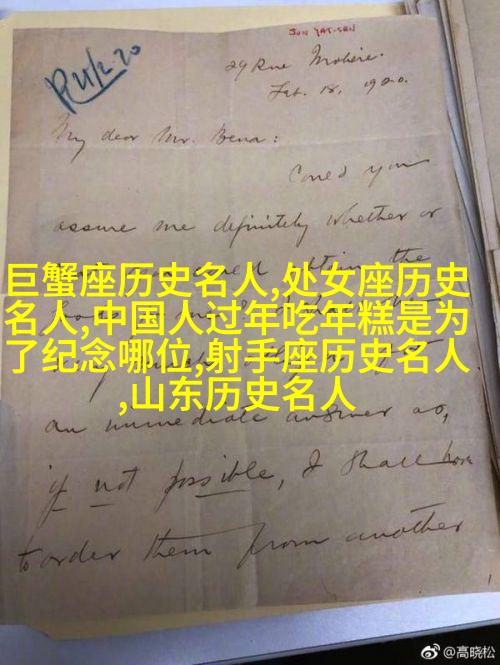 SUN YAT-SEN
R 21/2.20
29 Rue Molière.
Feb. 18, 1920.
My dear Mr. Bena:
Could you
assure me definitely whether or
巨蟹座历史名人,处女座历史
名人,中国人过年吃年糕是为
了纪念哪位,射手座历史名人
,山东历史名人
an immediate answer as,
if not possible, I shall have
to order them from another
@高晓松